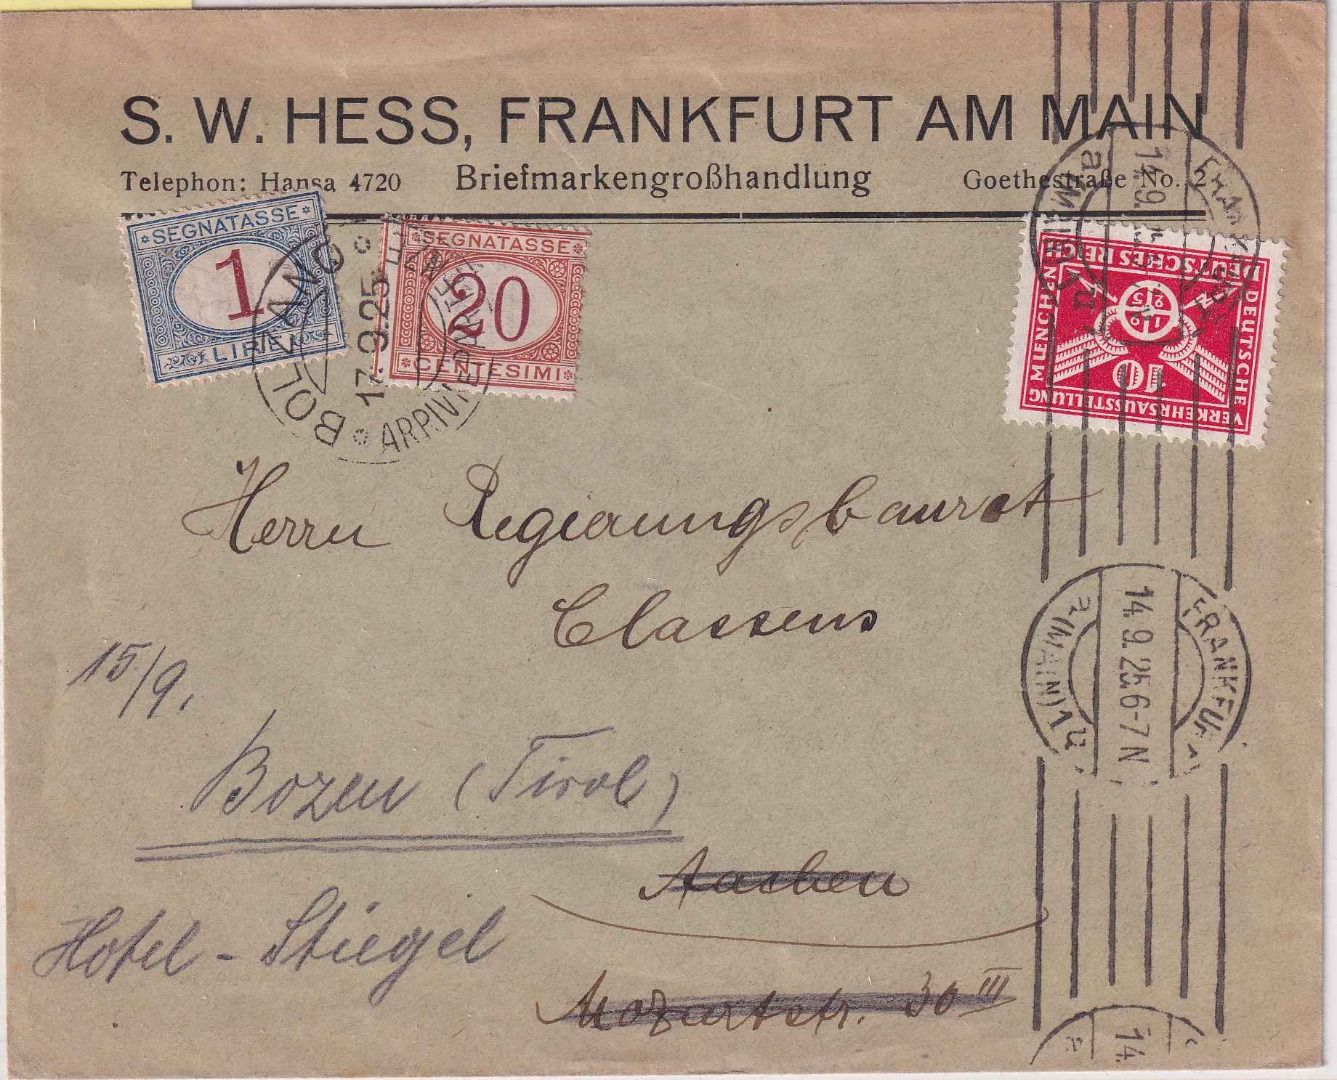 S. W. HESS, FRANKFURT AM MAIN
Telephon: Hansa 4720 Briefmarkengroßhandlung Goethestraße No. 2
*SEGNATASSE*
1
LIRE
*SEGNATASSE*
20
CENTESIMI
BOLZANO
17.9.25
DEUTSCHES REICH
DEUTSCHE
VERKEHRSAUSSTELLUNG
MÜNCHEN
1925
10
FRANKFURT
a (MAIN) 1
14.9.25.6-7N
Herrn Regierungsbaurat
Classens
15/9.
Bozen (Tirol)
Aachen
Hotel - Stiegel
Mozartstr. 30 III
FRANKFURT
(MAIN) 1
14.9.25.6-7N
14.